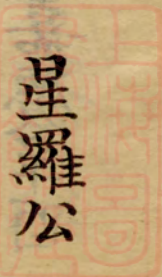 星羅公